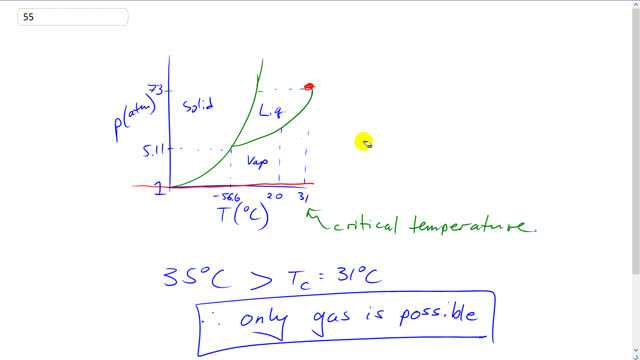 55
73
Solid
Liq.
P(atm)
5.11
Vap
1
-56.6 20 31
T(°C)
critical temperature.
35°C > Tc = 31°C
∴ only gas is possible